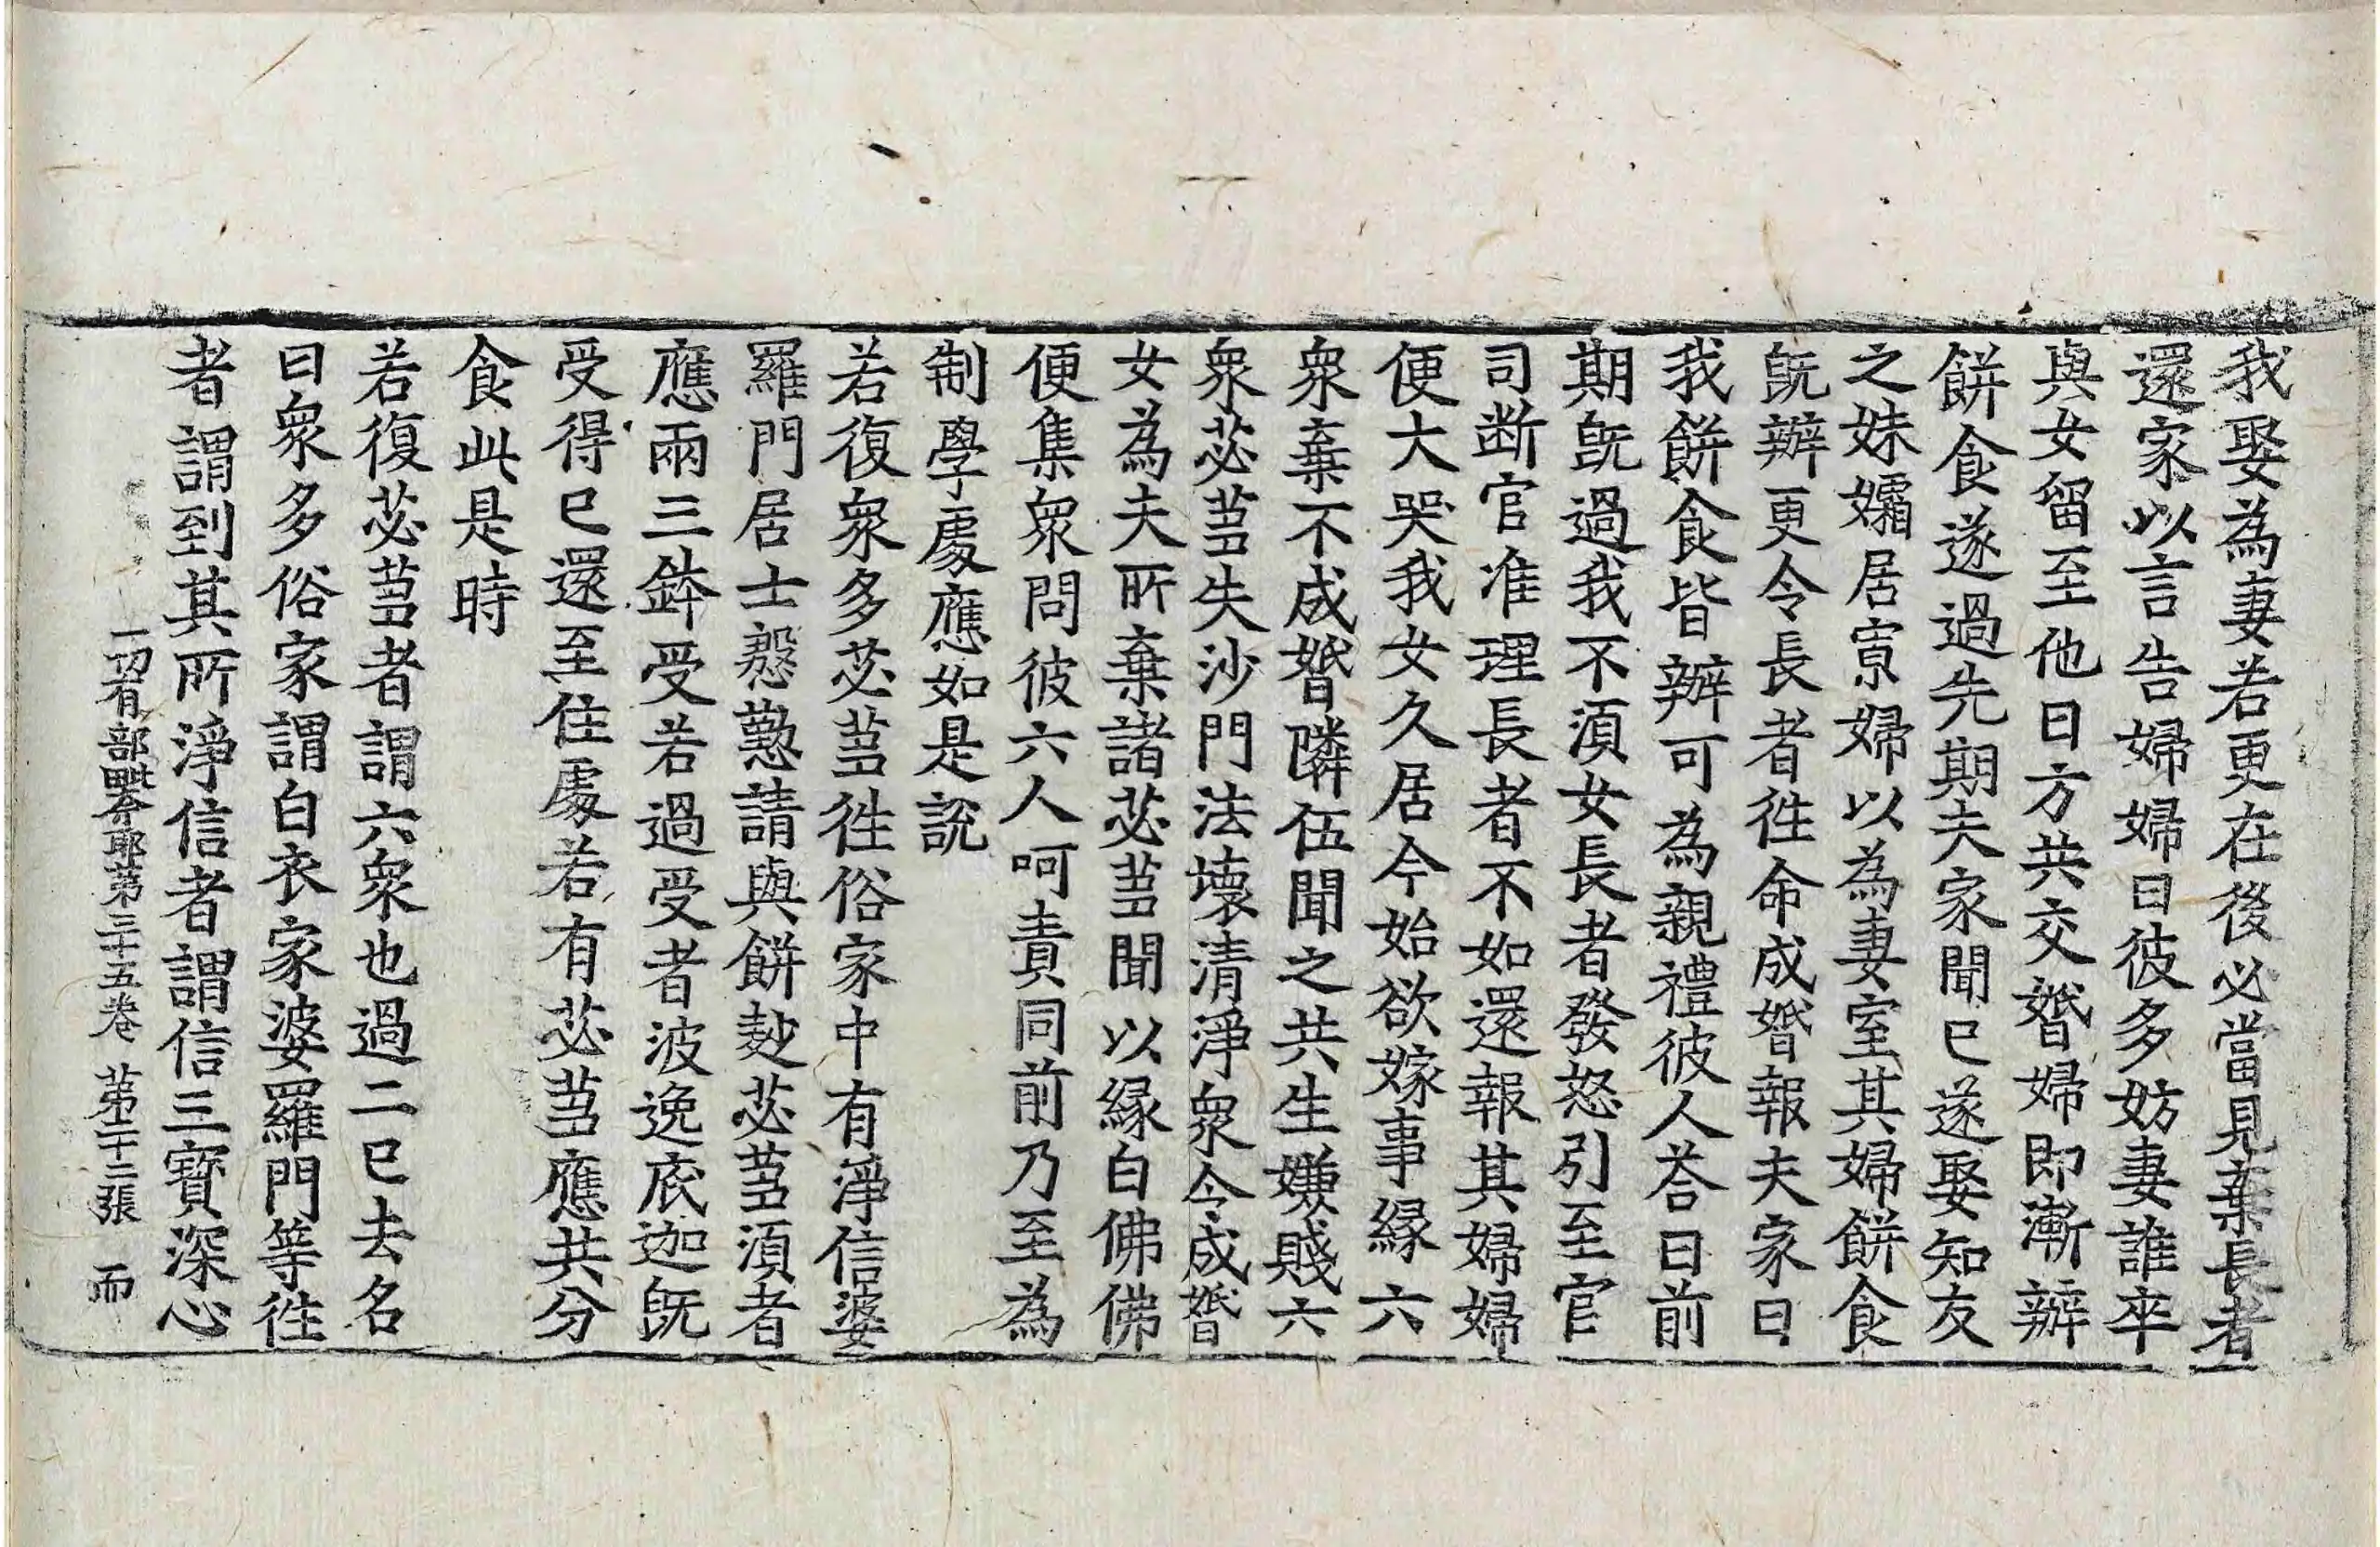 我娶為妻若更在後必當見棄長者
還家以言告婦婦曰彼多妨妻誰卒
與女留至他日方共交婚婦即漸辦
餅食遂過先期夫家聞已遂娶知友
之妹孀居寡婦以為妻室其婦餅食
既辦更令長者徃命成婚報夫家曰
我餅食皆辦可為親禮彼人荅曰前
期既過我不湏女長者發怒引至官
司断官准理長者不如還報其婦婦
便大哭我女久居今始欲嫁事縁六
衆棄不成婚隣伍聞之共生嫌賤六
衆苾蒭失沙門法壞清淨衆令成婚
女為夫所棄諸苾蒭聞以縁白佛佛
便集衆問彼六人呵責同前乃至為
制學處應如是說
若復衆多苾蒭徃俗家中有淨信婆
羅門居士慇懃請與餅麨苾蒭湏者
應兩三鉢受若過受者波逸底迦既
受得已還至住處若有苾蒭應共分
食此是時
若復苾蒭者謂六衆也過二已去名
曰衆多俗家謂白衣家婆羅門等徃
者謂到其所淨信者謂信三寶深心
一切有部毗奈耶第三十五卷 第二十二張 而